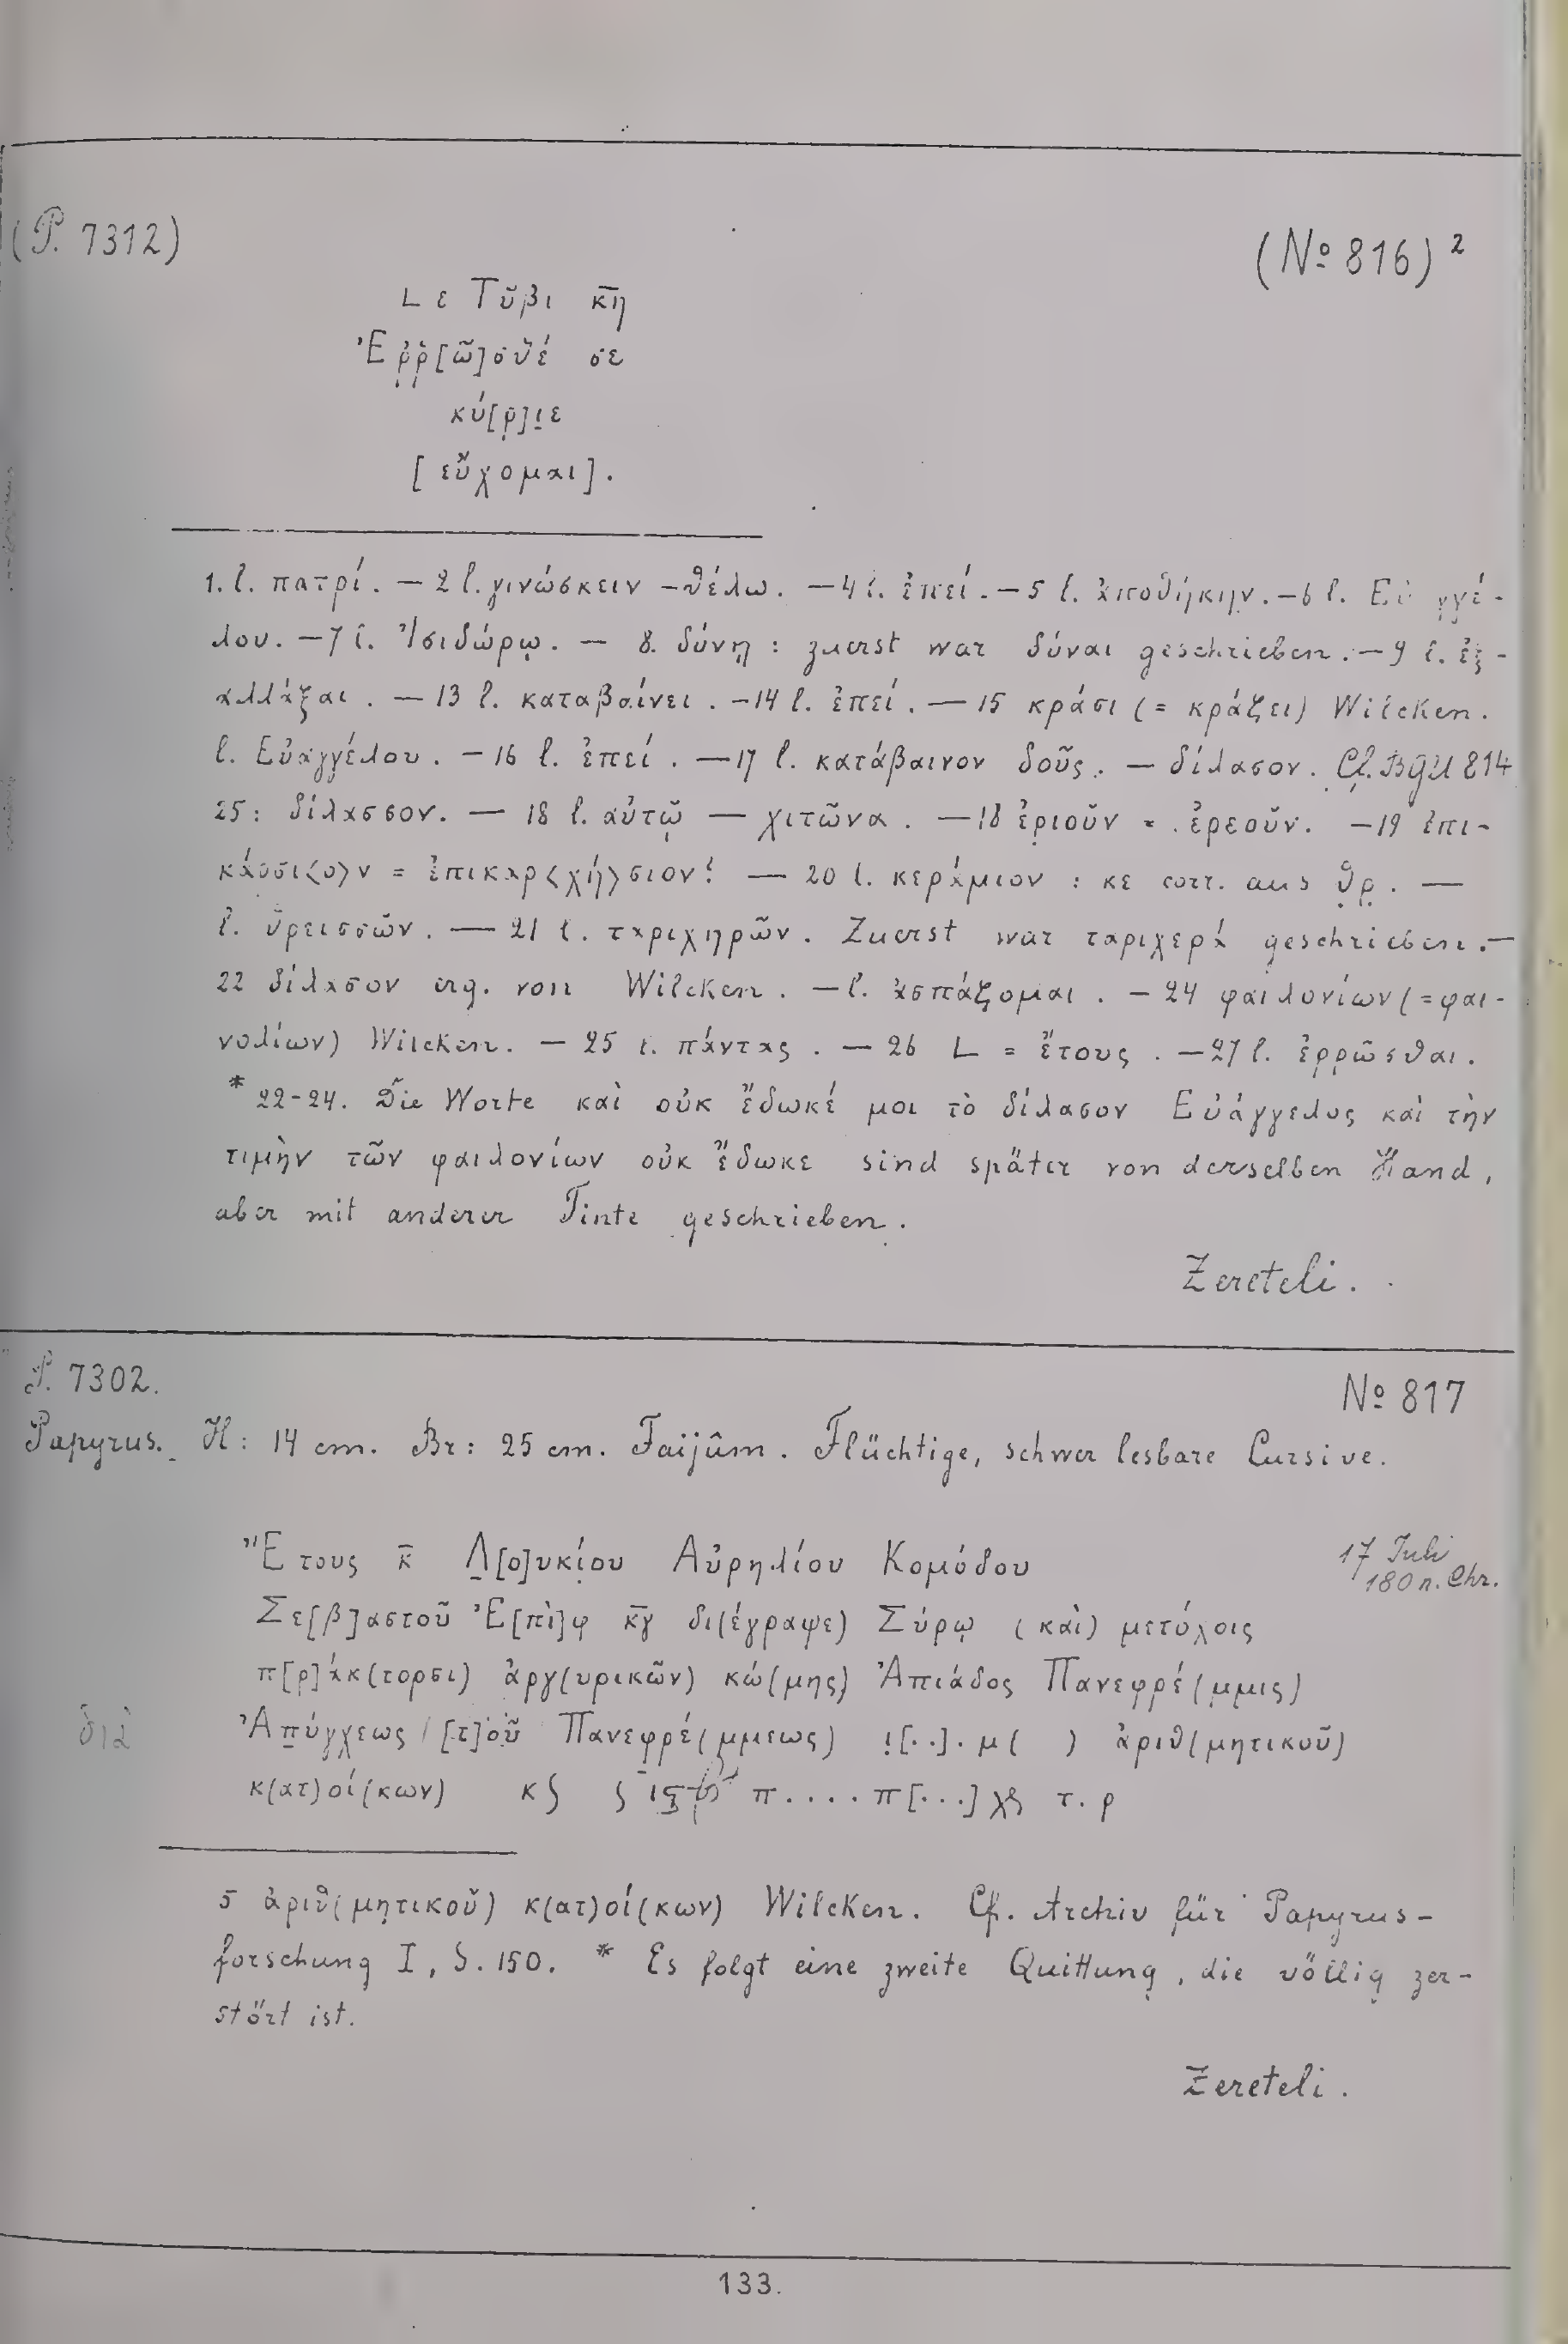 (P. 7312)
(№ 816)²
L ε Τῦβι κ̅η̅
Ἐρ̣ρ̣[ῶ]σθέ σε
κύ[ρ]ι̣ε
[εὔχομαι].
1. l. πατρί. — 2 l. γινώσκειν — θέλω. — 4 l. ἐπεί. — 5 l. ἀποθήκην. — 6 l. Εὐαγγέ-
λου. — 7 l. Ἰσιδώρῳ. — 8. δύνῃ : zuerst war δύναι geschrieben. — 9 l. ἐξ-
αλλάξαι. — 13 l. καταβαίνει. — 14 l. ἐπεί. — 15 κράσι (= κράζει) Wilcken.
l. Εὐαγγέλου. — 16 l. ἐπεί. — 17 l. κατάβαινον δοῦς. — δίλασον. Cf. BGU 814
25: δίλασσον. — 18 l. αὐτῷ — χιτῶνα. — 18 ἐριοῦν = ἐρεοῦν. — 19 ἐπι-
κάρσι⟨ο⟩ν = ἐπικαρ⟨χή⟩σιον! — 20 l. κεράμιον : κε corr. aus θ̣ρ̣. —
l. ὑρεισσῶν. — 21 l. ταριχηρῶν. Zuerst war ταριχερά geschrieben. —
22 δίλασον erg. von Wilcken. — l. ἀσπάζομαι. — 24 φαιλονίων (= φαι-
νολίων) Wilcken. — 25 l. πάντας. — 26 L = ἔτους. — 27 l. ἐρρῶσθαι.
* 22-24. Die Worte καὶ οὐκ ἔδωκέ μοι τὸ δίλασον Εὐάγγελος καὶ τὴν
τιμὴν τῶν φαιλονίων οὐκ ἔδωκε sind später von derselben Hand,
aber mit anderer Tinte geschrieben.
Zereteli.
P. 7302.
№ 817
Papyrus. H: 14 cm. Br: 25 cm. Faijûm. Flüchtige, schwer lesbare Cursive.
Ἔτους κ̅ Λ̣[ο]υκί̣ου Αὐρηλίου Κομόδου
17 Juli
180 n. Chr.
Σε[β]αστοῦ Ἐ[πὶ]φ κ̅γ̅ δι(έγραψε) Σύρῳ (καὶ) μετόχοις
π[ρ]άκ(τορσι) ἀργ(υρικῶν) κώ(μης) Ἀπιάδος Πανεφρέ(μμις)
διὰ
Ἀπ̣ύγχεως [τ]οῦ Πανεφρέ(μμεως) ι̣[..]. μ( ) ἀριθ(μητικοῦ)
κ(ατ)οί(κων) π.... π[...] τ. ρ
5 ἀριθ(μητικοῦ) κ(ατ)οί(κων) Wilcken. Cf. Archiv für Papyrus-
forschung I, S. 150. * Es folgt eine zweite Quittung, die völlig zer-
stört ist.
Zereteli.
133.